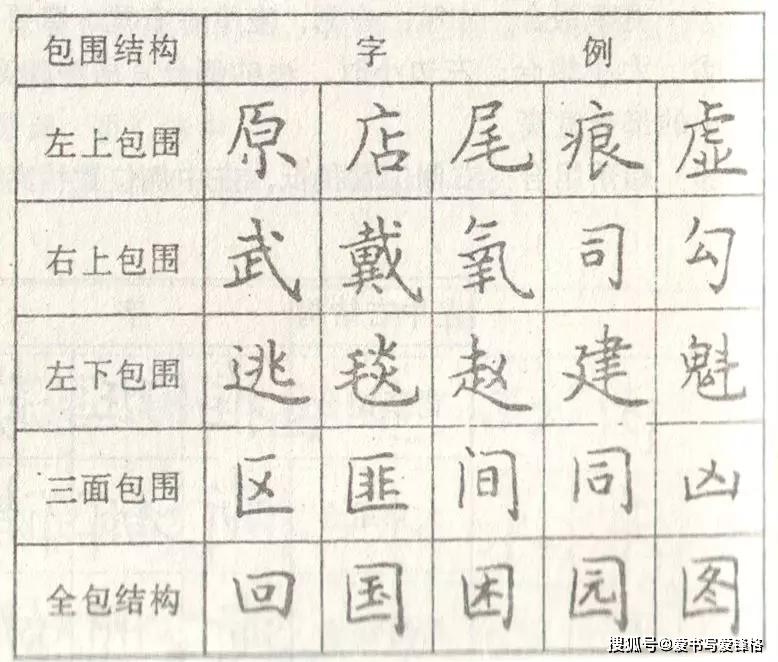 包围结构 字例
左上包围 原 店 尾 痕 虚
右上包围 武 戴 氧 司 勾
左下包围 逃 毯 赵 建 魁
三面包围 区 匪 间 同 凶
全包结构 回 国 困 园 图
搜狐号@爱书写爱锋格